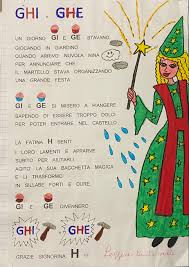 GHI . GHE
UN GIORNO GI E GE STAVANO
GIOCANDO IN GIARDINO
QUANDO ARRIVÒ NUVOLA NINA
PER ANNUNCIARE CHE
IL MARTELLO STAVA ORGANIZZANDO
UNA GRANDE FESTA
GI E GE SI MISERO A PIANGERE
SAPENDO DI ESSERE TROPPO DOLCI
PER POTER ENTRARE NEL CASTELLO
LA FATINA H SENTÌ
I LORO LAMENTI E APPARVE
SUBITO PER AIUTARLI.
AGITÒ LA SUA BACCHETTA MAGICA
E LI TRASFORMÒ
IN SILLABE FORTI E DURE.
GI E GE DIVENNERO
GHI GHE
GRAZIE SIGNORINA H